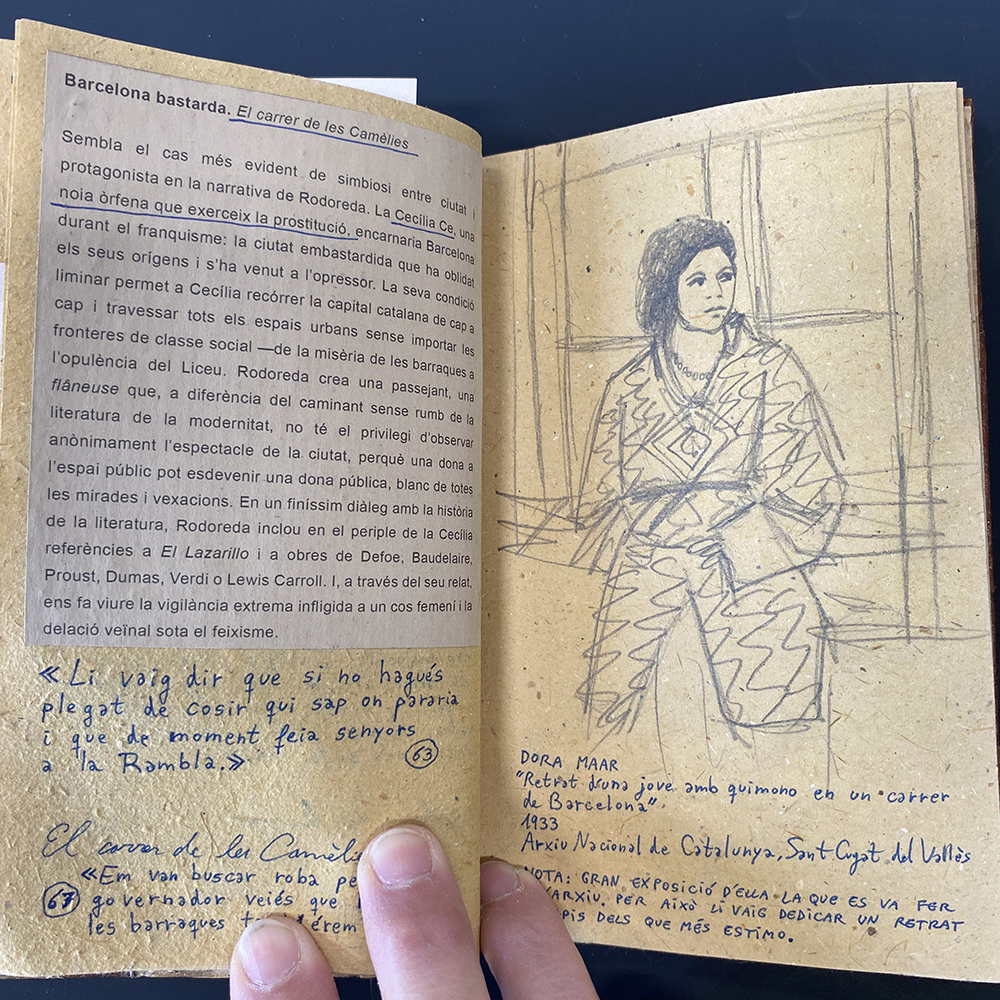 Barcelona bastarda. El carrer de les Camèlies
Sembla el cas més evident de simbiosi entre ciutat i
protagonista en la narrativa de Rodoreda. La Cecília Ce, una
noia òrfena que exerceix la prostitució, encarnaria Barcelona
durant el franquisme: la ciutat embastardida que ha oblidat
els seus orígens i s’ha venut a l’opressor. La seva condició
liminar permet a Cecília recórrer la capital catalana de cap a
cap i travessar tots els espais urbans sense importar les
fronteres de classe social —de la misèria de les barraques a
l’opulència del Liceu. Rodoreda crea una passejant, una
flâneuse que, a diferència del caminant sense rumb de la
literatura de la modernitat, no té el privilegi d’observar
anònimament l’espectacle de la ciutat, perquè una dona a
l’espai públic pot esdevenir una dona pública, blanc de totes
les mirades i vexacions. En un finíssim diàleg amb la història
de la literatura, Rodoreda inclou en el periple de la Cecília
referències a El Lazarillo i a obres de Defoe, Baudelaire,
Proust, Dumas, Verdi o Lewis Carroll. I, a través del seu relat,
ens fa viure la vigilància extrema infligida a un cos femení i la
delació veïnal sota el feixisme.
«Li vaig dir que si no hagués
plegat de cosir qui sap on pararia
i que de moment feia senyors
a la Rambla.» 63
El carrer de les Camèlies
«Em van buscar roba
67 governador veiés que
les barraques
DORA MAAR
"Retrat d'una jove amb quimono en un carrer
de Barcelona"
1933
Arxiu Nacional de Catalunya, Sant Cugat del Vallès
NOTA: GRAN EXPOSICIÓ D'ELLA LA QUE ES VA FER
ARXIU. PER AIXÒ LI VAIG DEDICAR UN RETRAT
DELS QUE MÉS ESTIMO.